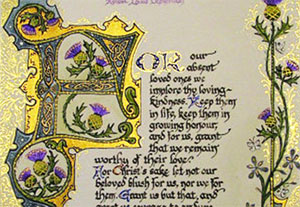 FOR our
absent
loved ones we
implore thy loving-
kindness. Keep them
in life, keep them in
growing honour,
and for us, grant
that we remain
worthy of their love.
For Christ's sake let not our
beloved blush for us, nor we for
them. Grant us but that, and
grant us courage to endure